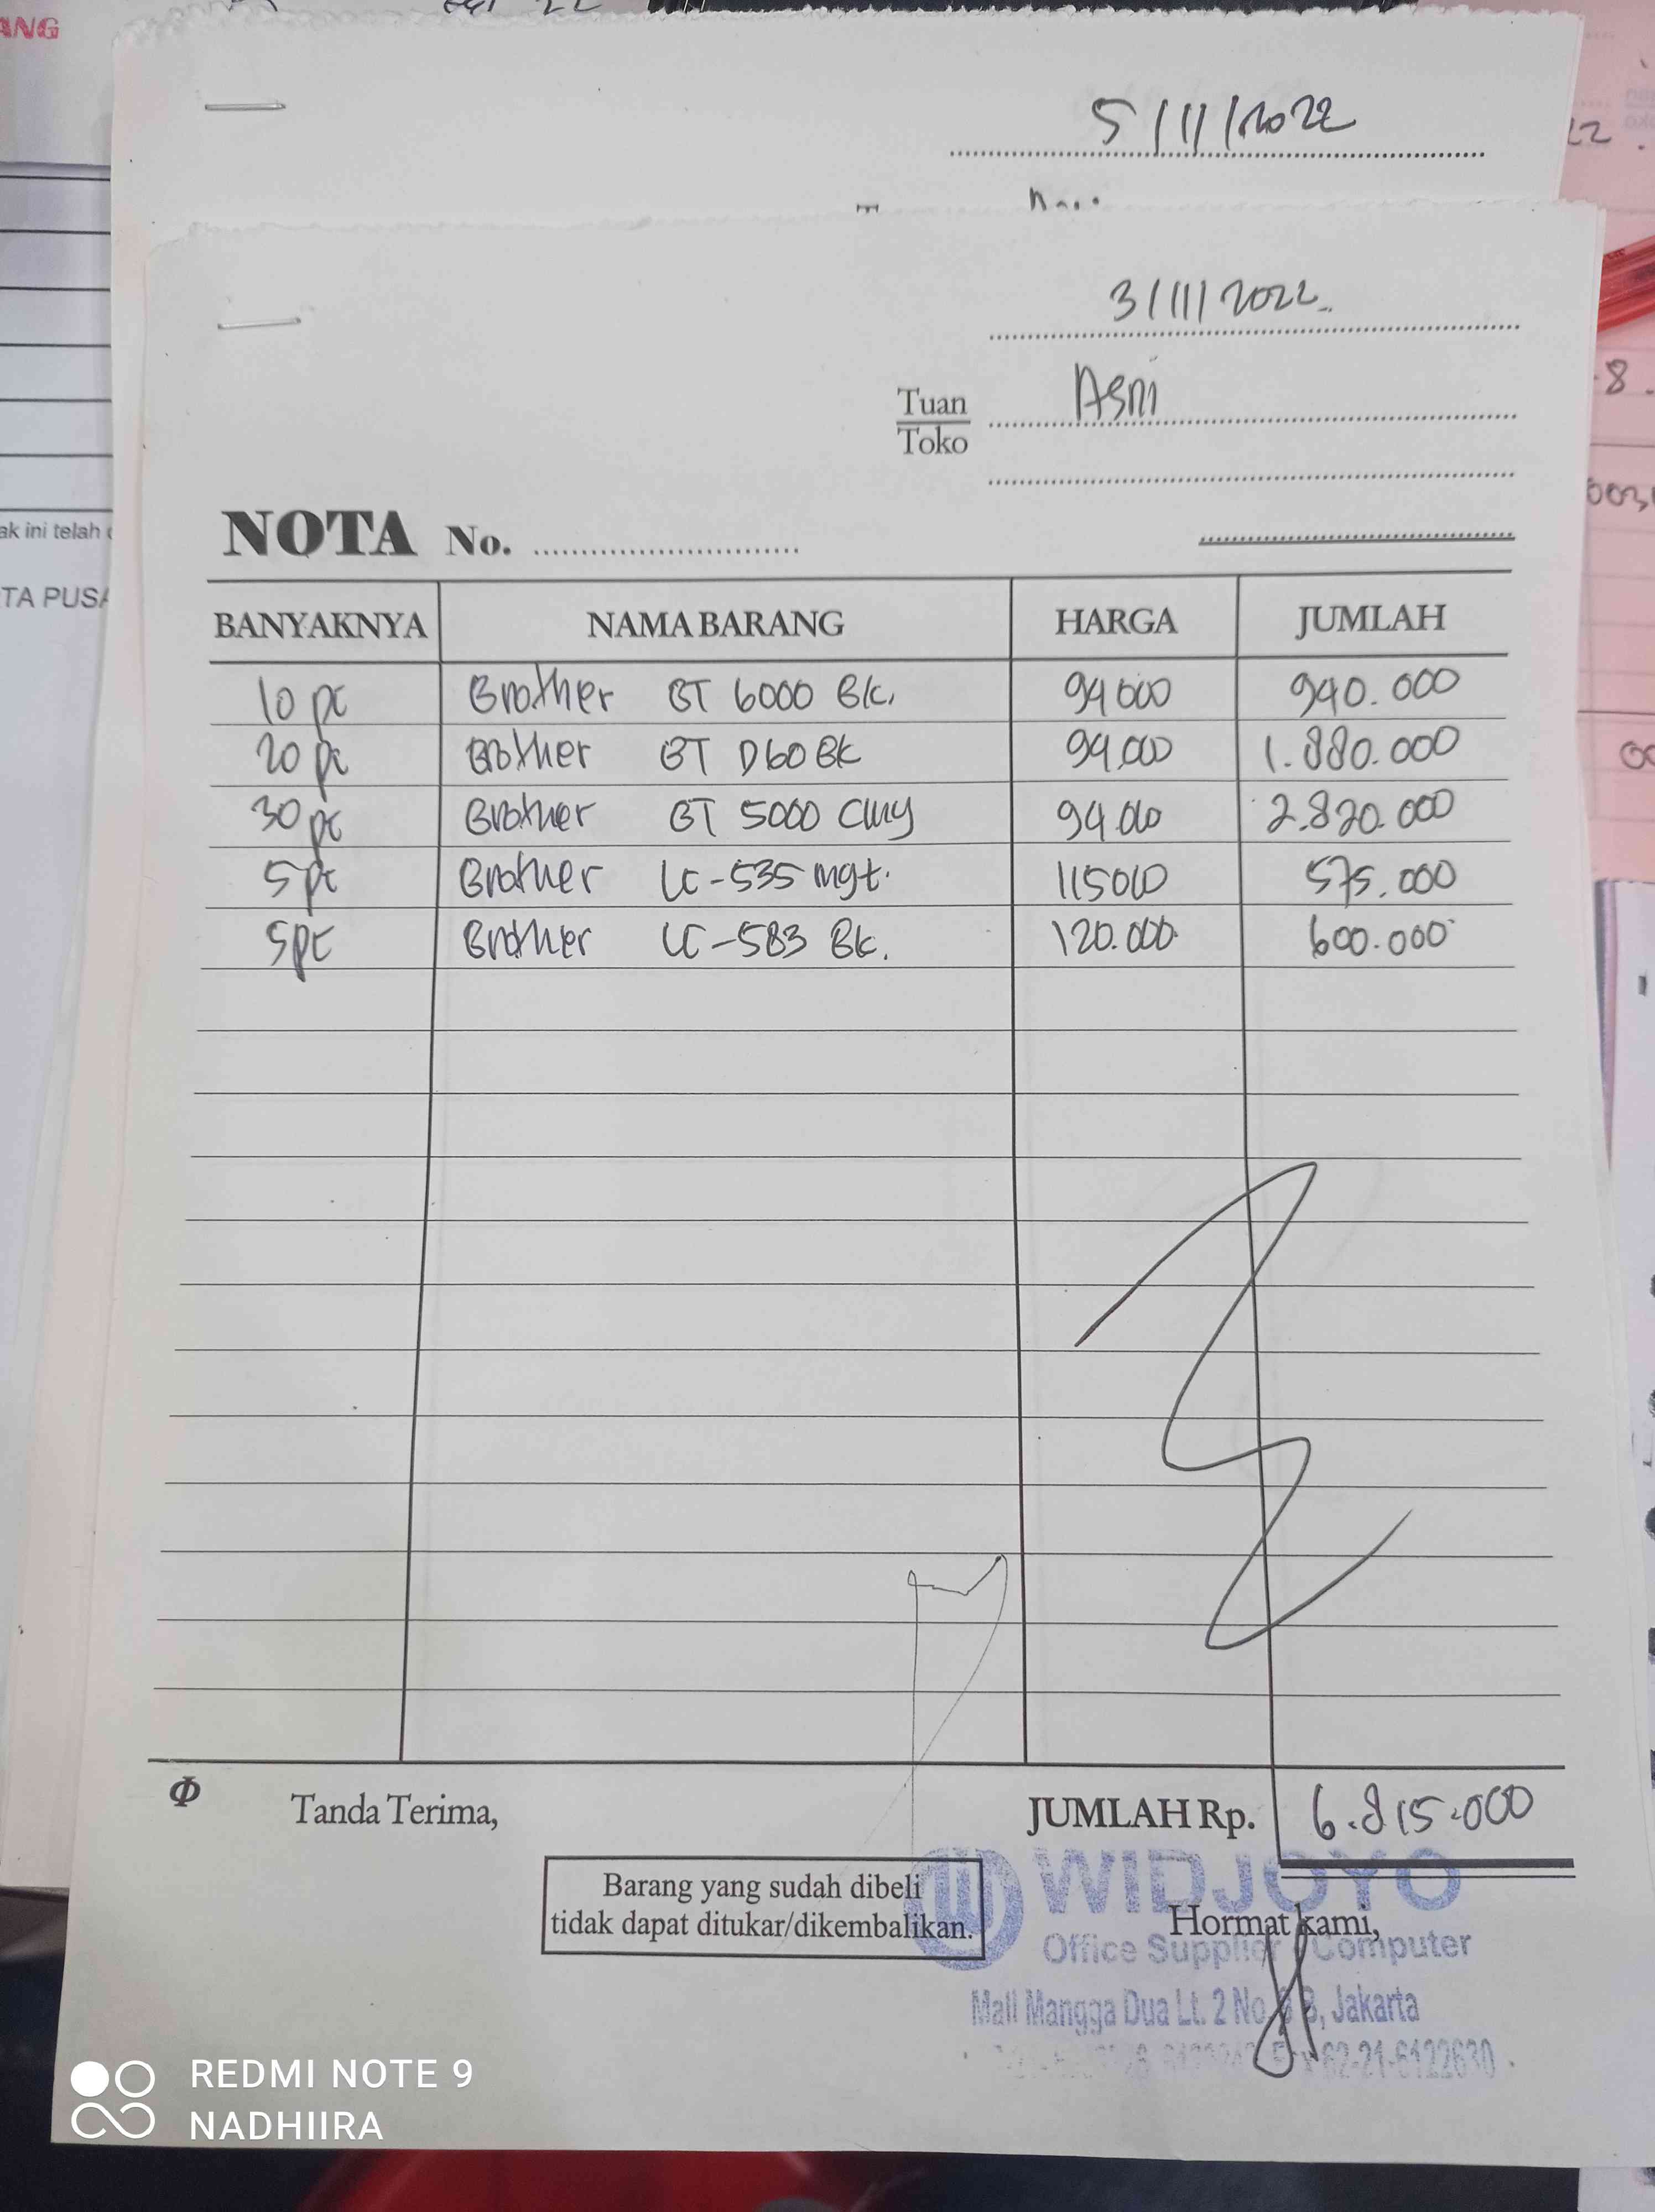 ANG
5/11/2022
3/11/2022
Tuan
Toko
Asni
ak ini telah
TA PUSA
NOTA No.
BANYAKNYA NAMA BARANG HARGA JUMLAH
10 pc Brother BT 6000 Bk. 94000 940.000
20 pc Brother BT D60 Bk 94.000 1.880.000
30 pc Brother BT 5000 CMY 94.000 2.820.000
5 pc Brother LC-535 mgt. 115000 575.000
5 pc Brother LC-583 Bk. 120.000 600.000
Tanda Terima,
JUMLAH Rp. 6.815.000
Barang yang sudah dibeli
tidak dapat ditukar/dikembalikan.
WIDJOYO
Hormat kami,
Office Supplier Computer
Mall Mangga Dua Lt. 2 No. B, Jakarta
62-21-6122630
REDMI NOTE 9
NADHIIRA